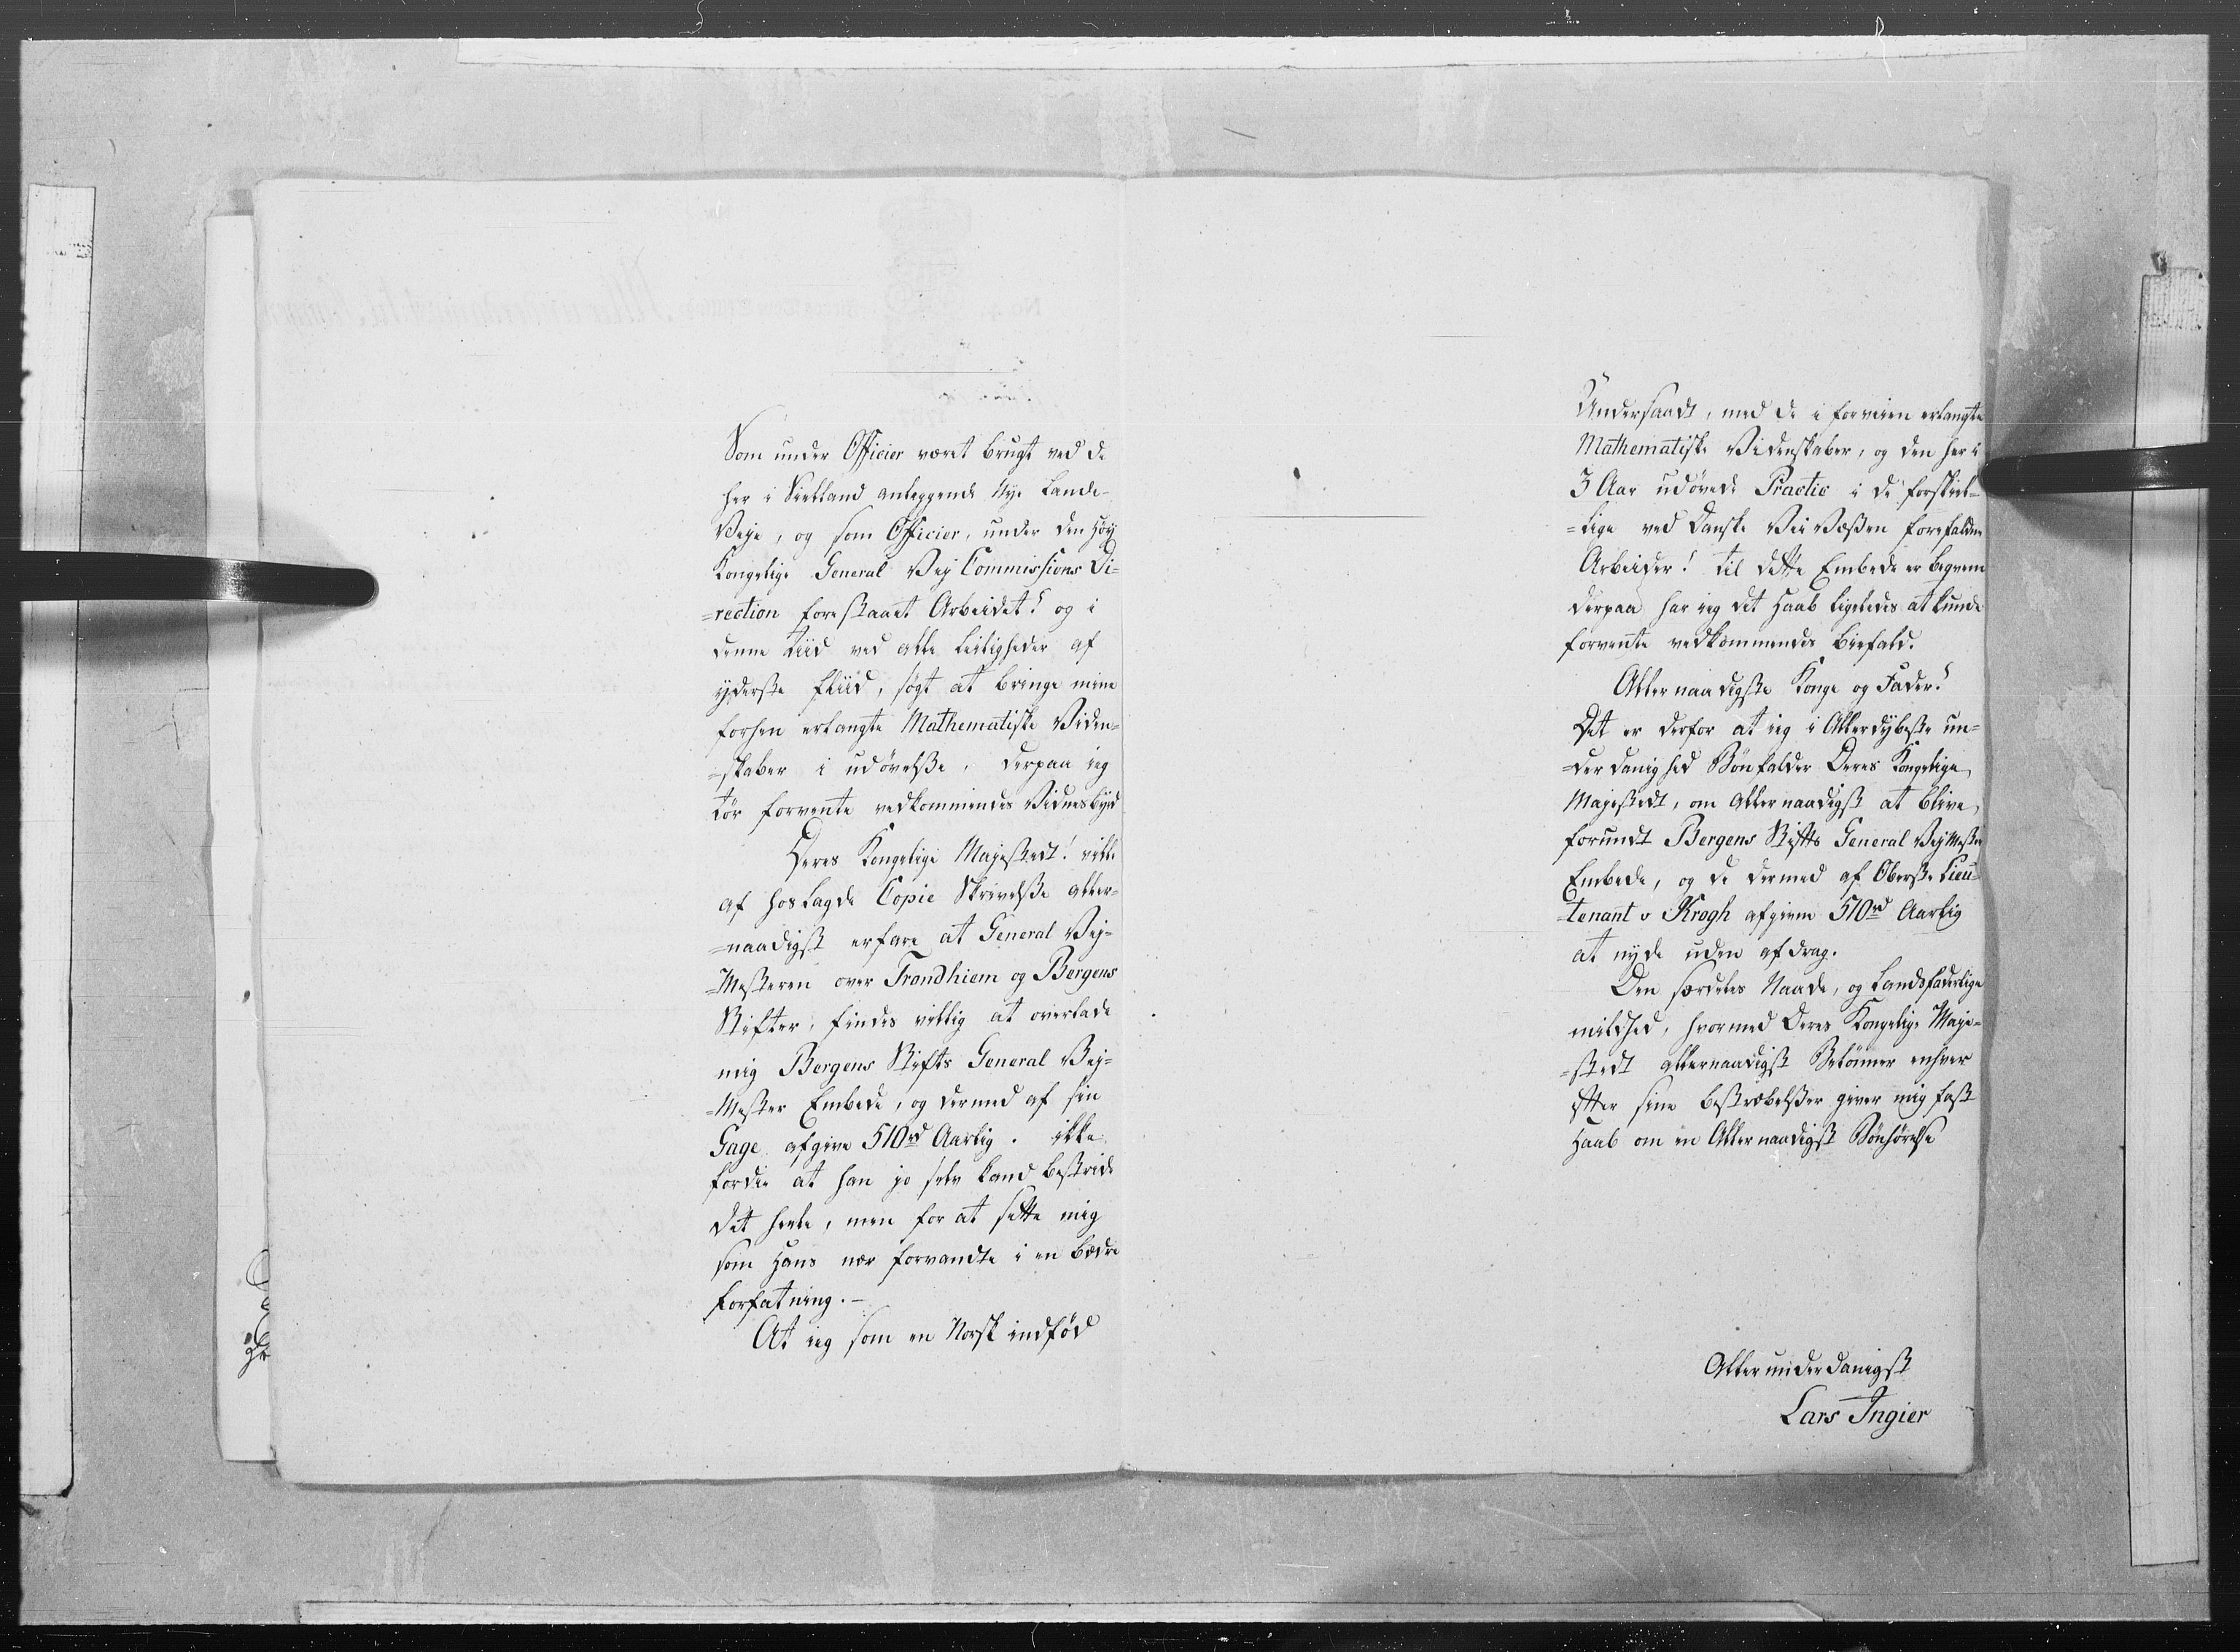 Som under Officier været brugt ved de
her i Siælland anlæggende Nye Lande-
Veye, og som Officier, under den Høy
Kongelige General Vej Commissions Di-
=rection forestaaet Arbeidet! og i
denne tiid ved alle leiligheder af
yderste fliid, søgt at bringe mine
forhen erlangte Mathematiske Viden-
=skaber i udøvelse, derpaa ieg
tør forvente vedkommendes Vidnesbyrd
Deres Kongelige Majestedt! ville
af hoslagde Copie Skrivelse aller-
=naadigst erfare at General Vej-
=Mesteren over Trondhiem og Bergens
Stifter, findes villig at overlade
mig Bergens Stifts General Vej-
=Mester Embede, og dermed af sin
Gage afgive 510rd Aarlig. ikke
fordie at han jo selv kand bestride
det heele, men for at sette mig
som Hans nær forvandte i en bedre
forfatning.-
At ieg som en Norsk indfød
Undersaadt, med de i forveien erlangte
Mathematiske Videnskaber, og den her i
3 Aar udøvede Practic i de forskiel-
=lige ved Danske Vei Væßen forefaldne
Arbeider! til dette Embede er beqvem
derpaa har ieg det Haab ligeledes at kunde
forvente vedkommendes biefald.
Allernaadigste Konge og Fader!
Det er derfor at ieg i Allerdybeste un-
=derdanighed Bønfalder Deres Kongelige
Majestedt, om Allernaadigst at blive
forundt Bergens Stifts General Vej Mester
Embede, og de dermed af Oberste Lieu-
=tenant v Krogh afgivne 510rd Aarlig
at nyde uden afdrag.
Den særdeles Naade, og Landsfaderlige
mildhed, hvormed Deres Kongelige Maje-
=stedt allernaadigst Belønner enhver
efter sine bestræbelser giver mig fast
Haab om en Allernaadigst Bønhørelse
Allerunderdanigst
Lars Ingier